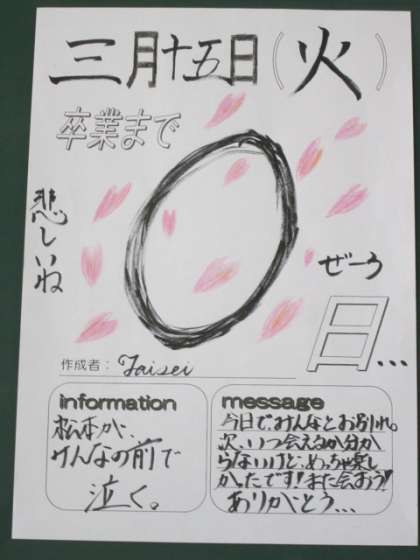 三月十五日(火)
卒業まで
0
悲しいね
ぜーろ
日...
作成者: Taisei
information
松本が、
みんなの前で
泣く。
message
今日で、みんなとお別れ。
次、いつ会えるか分か
らないけど、めっちゃ楽し
かったです!また会おう!
ありがとう...